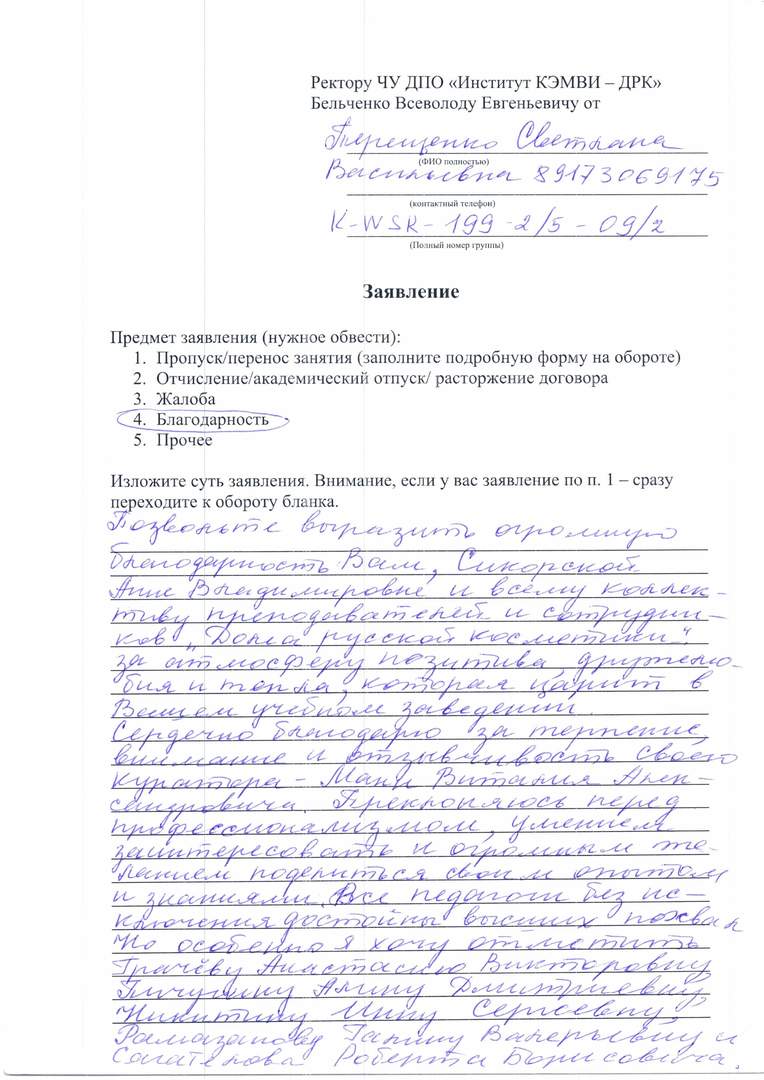 Ректору ЧУ ДПО «Институт КЭМВИ – ДРК»
Бельченко Всеволоду Евгеньевичу от
Терещенко Светлана
(ФИО полностью)
Васильевна 89173069175
(контактный телефон)
K-WSR-199-2/5-09/2
(Полный номер группы)
Заявление
Предмет заявления (нужное обвести):
1. Пропуск/перенос занятия (заполните подробную форму на обороте)
2. Отчисление/академический отпуск/ расторжение договора
3. Жалоба
4. Благодарность
5. Прочее
Изложите суть заявления. Внимание, если у вас заявление по п. 1 – сразу
переходите к обороту бланка.
Позвольте выразить огромную
благодарность Вам, Сикорской
Анне Владимировне и всему коллек-
тиву преподавателей и сотрудни-
ков „Дома русской косметики"
за атмосферу позитива, дружелю-
бия и тепла, которая царит в
Вашем учебном заведении.
Сердечно благодарю за терпение,
внимание и отзывчивость своего
куратора – Виталия Алек-
сандровича. Преклоняюсь перед
профессионализмом, умением
заинтересовать и огромным же-
ланием поделиться своим опытом
и знаниями. Все педагоги без ис-
ключения достойны высших похвал
Но особенно я хочу отметить
Грачёву Анастасию Викторовну
Пичугину Алину Дмитриевну,
Никитину Инну Сергеевну,
Рамазанову Галину Валерьевну и
Роберта Борисовича.